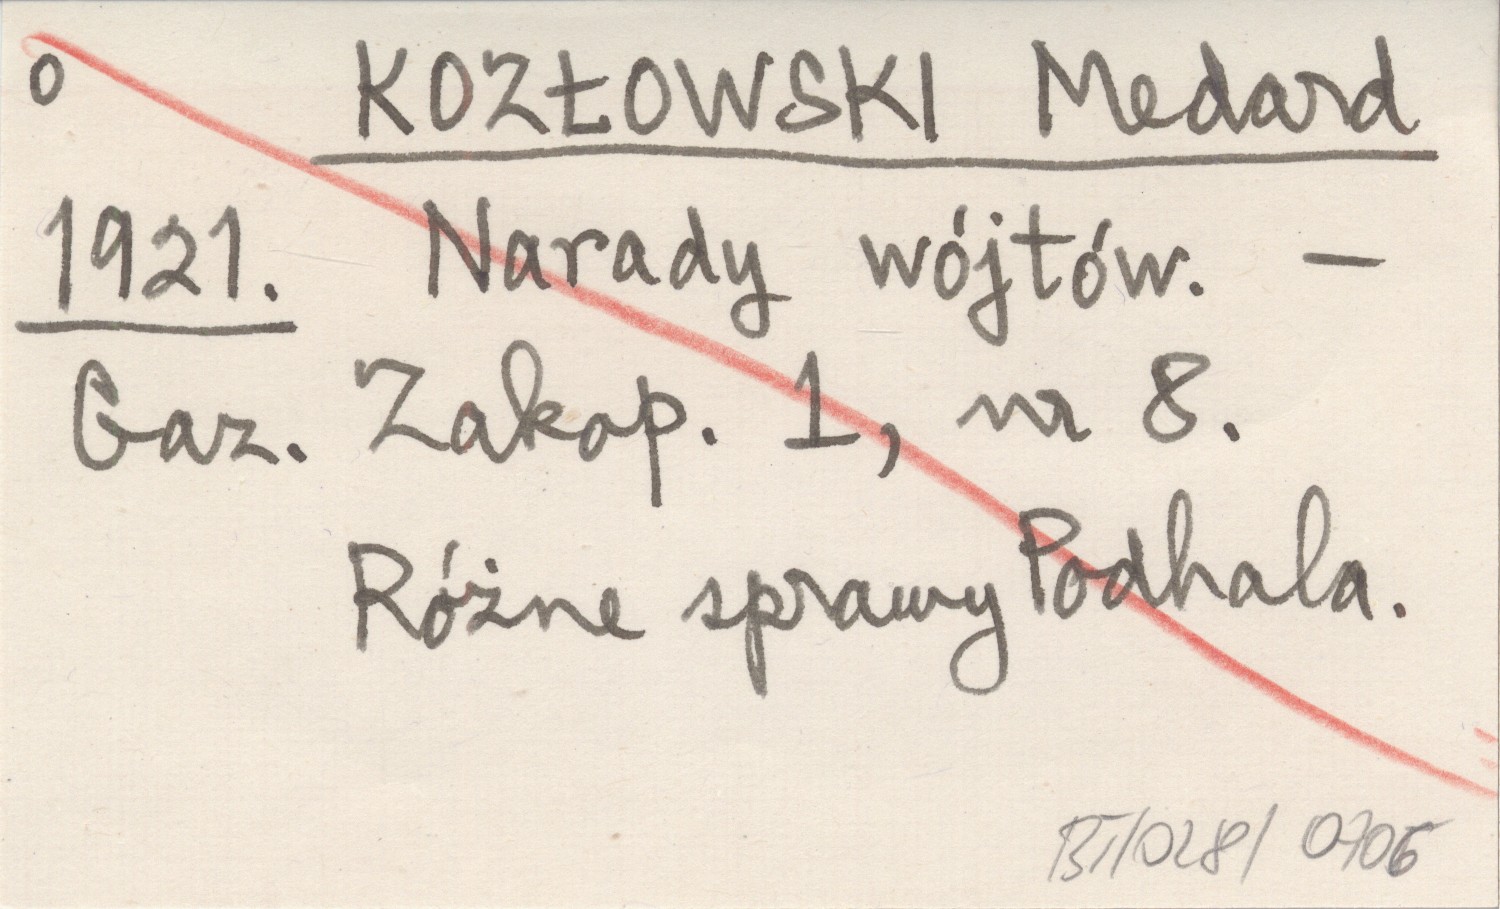 o KOZŁOWSKI Medard
1921. Narady wójtów. –
Gaz. Zakop. 1, nr 8.
Różne sprawy Podhala.
BT/028/ 0706